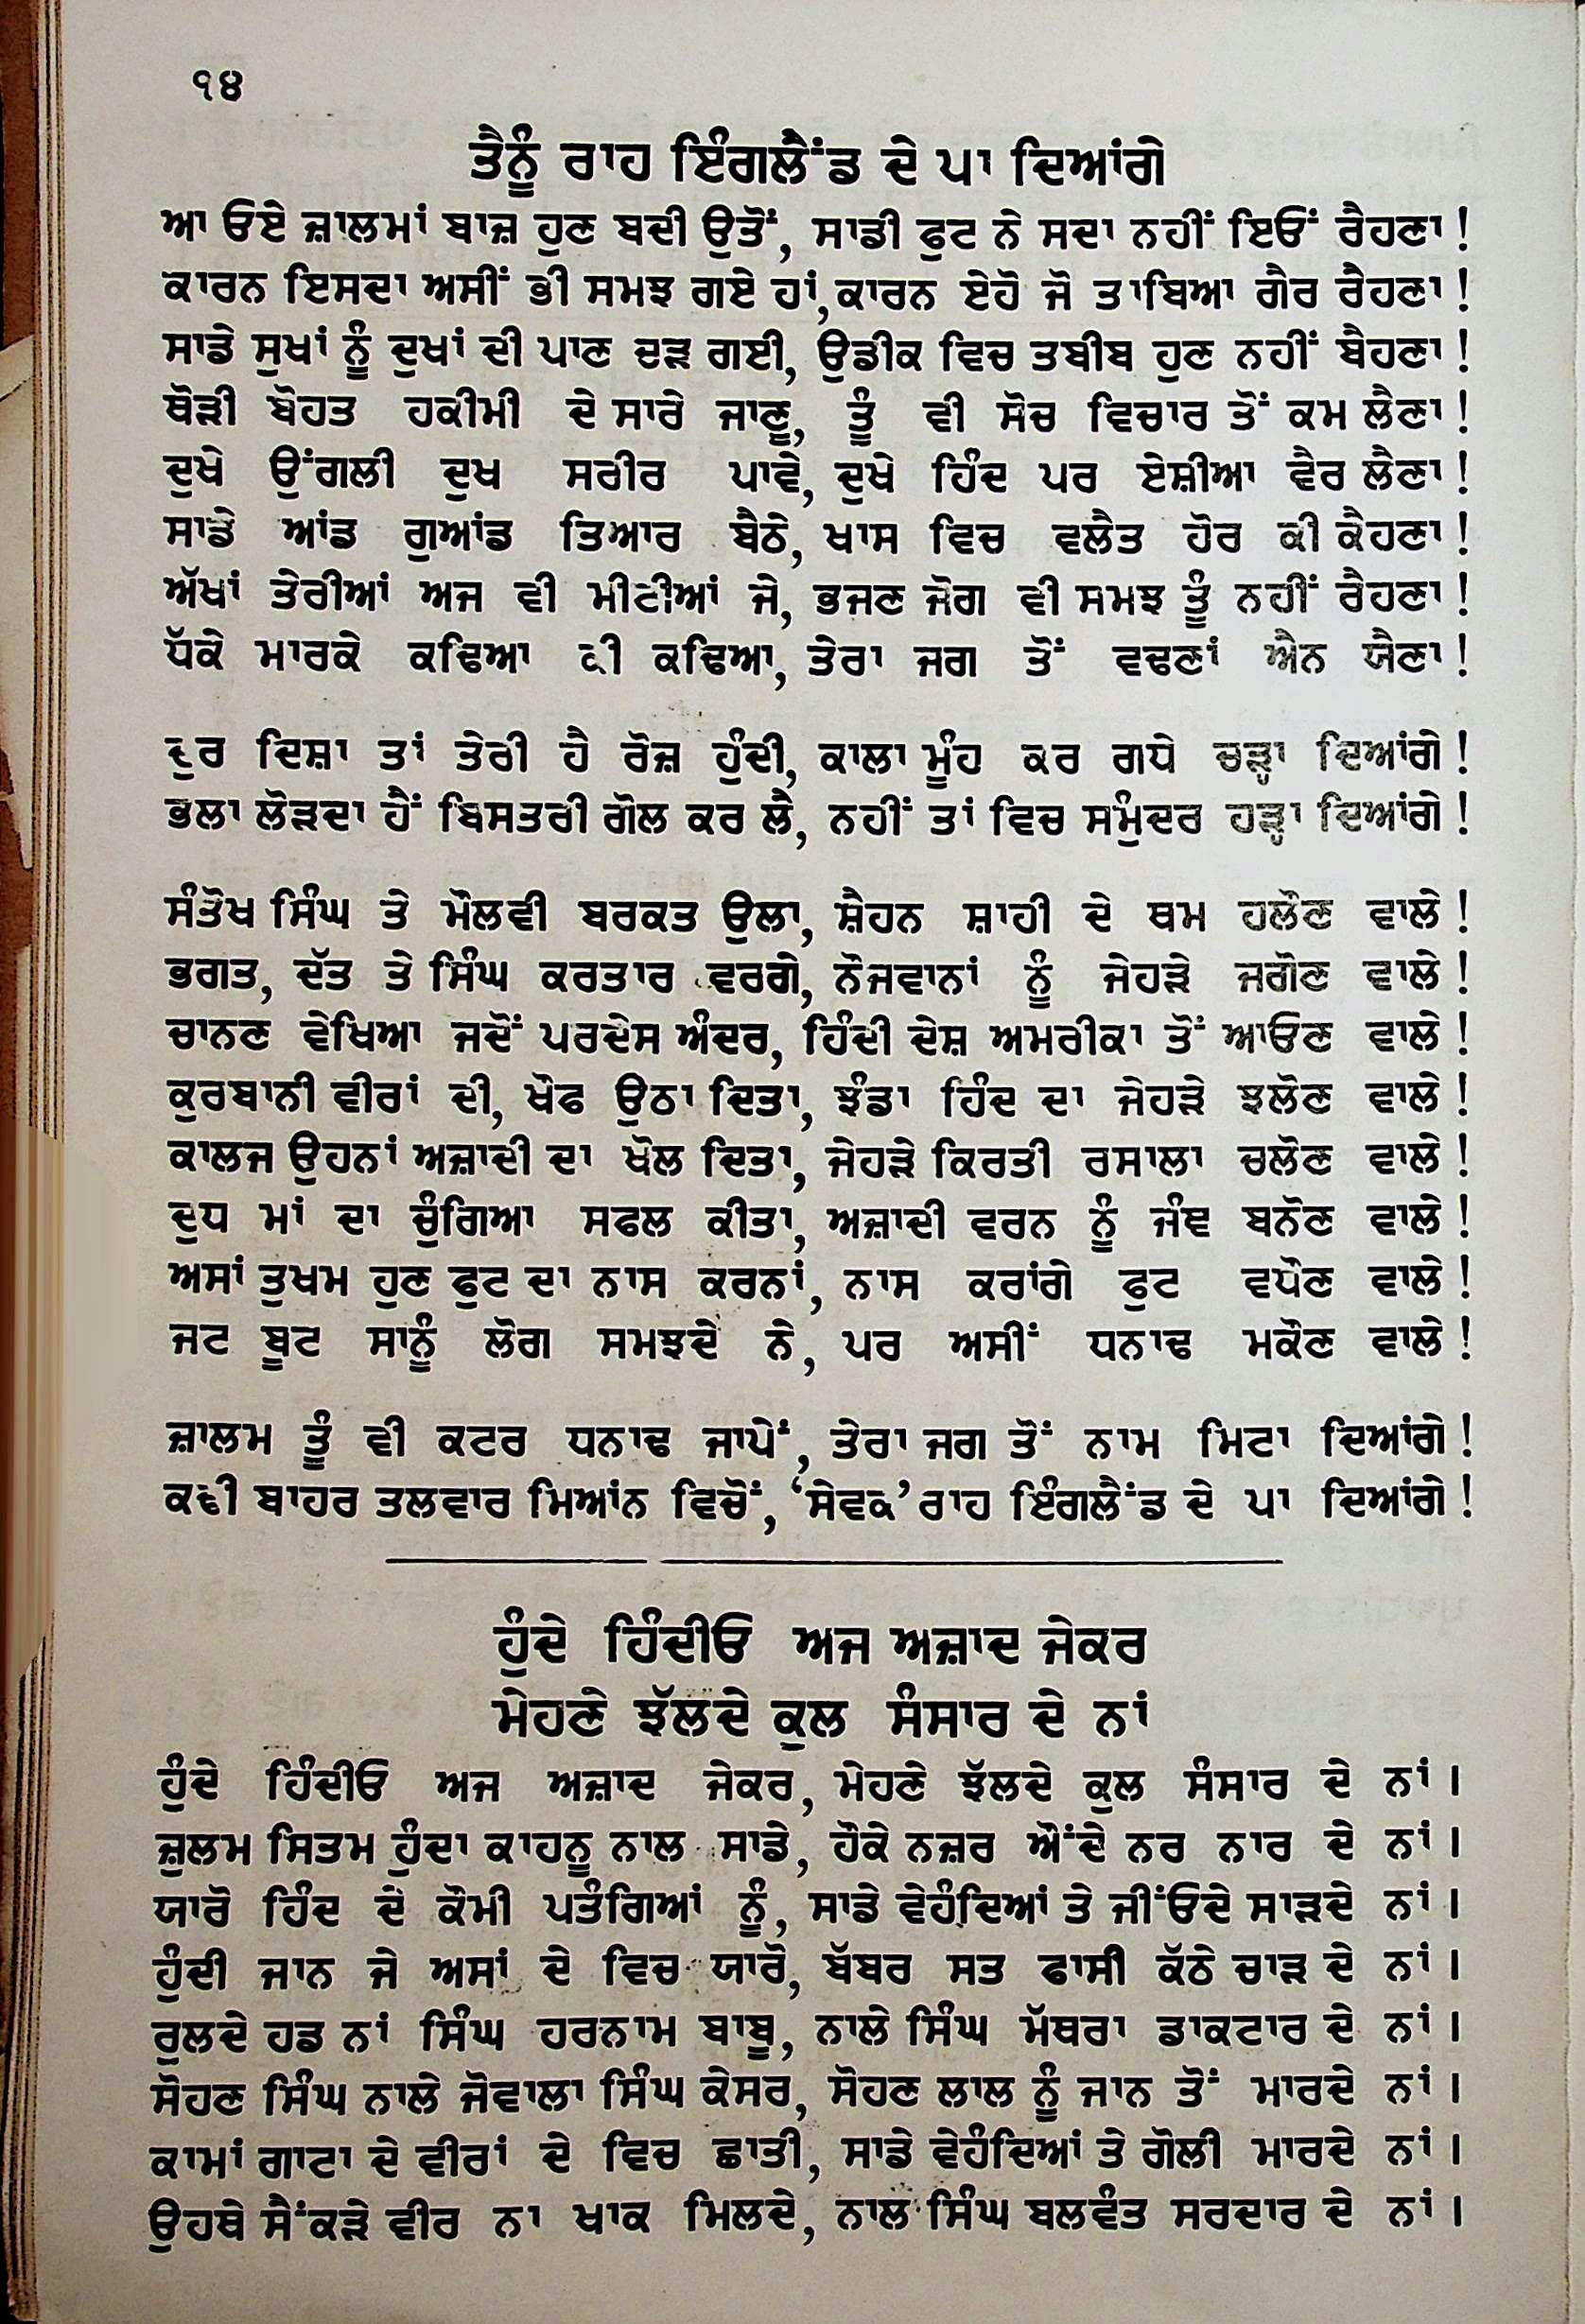 ੧੪
ਤੈਨੂੰ ਰਾਹ ਇੰਗਲੈਂਡ ਦੇ ਪਾ ਦਿਆਂਗੇ
ਆ ਓਏ ਜ਼ਾਲਮਾਂ ਬਾਜ਼ ਹੁਣ ਬਦੀ ਉਤੋਂ, ਸਾਡੀ ਫੁਟ ਨੇ ਸਦਾ ਨਹੀਂ ਇਓਂ ਰੈਹਣਾ !
ਕਾਰਨ ਇਸਦਾ ਅਸੀਂ ਭੀ ਸਮਝ ਗਏ ਹਾਂ, ਕਾਰਨ ਏਹੋ ਜੋ ਤਾਬਿਆ ਗੈਰ ਰੈਹਣਾ !
ਸਾਡੇ ਸੁਖਾਂ ਨੂੰ ਦੁਖਾਂ ਦੀ ਪਾਣ ਚੜ ਗਈ, ਉਡੀਕ ਵਿਚ ਤਬੀਬ ਹੁਣ ਨਹੀਂ ਬੈਹਣਾ !
ਥੋੜੀ ਬੋਹਤ ਹਕੀਮੀ ਦੇ ਸਾਰੇ ਜਾਣੂ, ਤੂੰ ਵੀ ਸੋਚ ਵਿਚਾਰ ਤੋਂ ਕਮ ਲੈਣਾ !
ਦੁਖੇ ਉਂਗਲੀ ਦੁਖ ਸਰੀਰ ਪਾਵੇ, ਦੁਖੇ ਹਿੰਦ ਪਰ ਏਸ਼ੀਆ ਵੈਰ ਲੈਣਾ !
ਸਾਡੇ ਆਂਡ ਗੁਆਂਡ ਤਿਆਰ ਬੈਠੇ, ਖਾਸ ਵਿਚ ਵਲੈਤ ਹੋਰ ਕੀ ਕੈਹਣਾ !
ਅੱਖਾਂ ਤੇਰੀਆਂ ਅਜ ਵੀ ਮੀਟੀਆਂ ਜੇ, ਭਜਣ ਜੋਗ ਵੀ ਸਮਝ ਤੂੰ ਨਹੀਂ ਰੈਹਣਾ !
ਧੱਕੇ ਮਾਰਕੇ ਕਢਿਆ ਕੀ ਕਢਿਆ, ਤੇਰਾ ਜਗ ਤੋਂ ਵਢਣਾਂ ਐਨ ਯੈਣਾ !
ਦੁਰ ਦਿਸ਼ਾ ਤਾਂ ਤੇਰੀ ਹੈ ਰੋਜ਼ ਹੁੰਦੀ, ਕਾਲਾ ਮੂੰਹ ਕਰ ਗਧੇ ਚੜ੍ਹਾ ਦਿਆਂਗੇ !
ਭਲਾ ਲੋੜਦਾ ਹੈਂ ਬਿਸਤਰੀ ਗੋਲ ਕਰ ਲੈ, ਨਹੀਂ ਤਾਂ ਵਿਚ ਸਮੁੰਦਰ ਹੜ੍ਹਾ ਦਿਆਂਗੇ !
ਸੰਤੋਖ ਸਿੰਘ ਤੇ ਮੌਲਵੀ ਬਰਕਤ ਉਲਾ, ਸ਼ੈਹਨ ਸ਼ਾਹੀ ਦੇ ਥਮ ਹਲੌਣ ਵਾਲੇ !
ਭਗਤ, ਦੱਤ ਤੇ ਸਿੰਘ ਕਰਤਾਰ ਵਰਗੇ, ਨੌਜਵਾਨਾਂ ਨੂੰ ਜੇਹੜੇ ਜਗੌਣ ਵਾਲੇ !
ਚਾਨਣ ਵੇਖਿਆ ਜਦੋਂ ਪਰਦੇਸ ਅੰਦਰ, ਹਿੰਦੀ ਦੇਸ਼ ਅਮਰੀਕਾ ਤੋਂ ਆਓਣ ਵਾਲੇ !
ਕੁਰਬਾਨੀ ਵੀਰਾਂ ਦੀ, ਖੌਫ ਉਠਾ ਦਿਤਾ, ਝੰਡਾ ਹਿੰਦ ਦਾ ਜੇਹੜੇ ਝਲੌਣ ਵਾਲੇ !
ਕਾਲਜ ਉਹਨਾਂ ਅਜ਼ਾਦੀ ਦਾ ਖੋਲ ਦਿਤਾ, ਜੇਹੜੇ ਕਿਰਤੀ ਰਸਾਲਾ ਚਲੌਣ ਵਾਲੇ !
ਦੁਧ ਮਾਂ ਦਾ ਚੁੰਗਿਆ ਸਫਲ ਕੀਤਾ, ਅਜ਼ਾਦੀ ਵਰਨ ਨੂੰ ਜੰਞ ਬਨੌਣ ਵਾਲੇ !
ਅਸਾਂ ਤੁਖਮ ਹੁਣ ਫੁਟ ਦਾ ਨਾਸ ਕਰਨਾਂ, ਨਾਸ ਕਰਾਂਗੇ ਫੁਟ ਵਧੌਣ ਵਾਲੇ !
ਜਟ ਬੂਟ ਸਾਨੂੰ ਲੋਗ ਸਮਝਦੇ ਨੇ, ਪਰ ਅਸੀਂ ਧਨਾਢ ਮਕੌਣ ਵਾਲੇ !
ਜ਼ਾਲਮ ਤੂੰ ਵੀ ਕਟਰ ਧਨਾਢ ਜਾਪੇਂ, ਤੇਰਾ ਜਗ ਤੋਂ ਨਾਮ ਮਿਟਾ ਦਿਆਂਗੇ !
ਕਢੀ ਬਾਹਰ ਤਲਵਾਰ ਮਿਆਂਨ ਵਿਚੋਂ, ‘ਸੇਵਕ’ ਰਾਹ ਇੰਗਲੈਂਡ ਦੇ ਪਾ ਦਿਆਂਗੇ !
ਹੁੰਦੇ ਹਿੰਦੀਓ ਅਜ ਅਜ਼ਾਦ ਜੇਕਰ
ਮੇਹਣੇ ਝੱਲਦੇ ਕੁਲ ਸੰਸਾਰ ਦੇ ਨਾਂ
ਹੁੰਦੇ ਹਿੰਦੀਓ ਅਜ ਅਜ਼ਾਦ ਜੇਕਰ, ਮੇਹਣੇ ਝੱਲਦੇ ਕੁਲ ਸੰਸਾਰ ਦੇ ਨਾਂ ।
ਜ਼ੁਲਮ ਸਿਤਮ ਹੁੰਦਾ ਕਾਹਨੂ ਨਾਲ ਸਾਡੇ, ਹੌਕੇ ਨਜ਼ਰ ਔਂਦੇ ਨਰ ਨਾਰ ਦੇ ਨਾਂ ।
ਯਾਰੋ ਹਿੰਦ ਦੇ ਕੌਮੀ ਪਤੰਗਿਆਂ ਨੂੰ, ਸਾਡੇ ਵੇਹੰਦਿਆਂ ਤੇ ਜੀਂਓਦੇ ਸਾੜਦੇ ਨਾਂ ।
ਹੁੰਦੀ ਜਾਨ ਜੇ ਅਸਾਂ ਦੇ ਵਿਚ ਯਾਰੋ, ਬੱਬਰ ਸਤ ਫਾਸੀ ਕੱਠੇ ਚਾੜ ਦੇ ਨਾਂ ।
ਰੁਲਦੇ ਹਡ ਨਾਂ ਸਿੰਘ ਹਰਨਾਮ ਬਾਬੂ, ਨਾਲੇ ਸਿੰਘ ਮੱਥਰਾ ਡਾਕਟਾਰ ਦੇ ਨਾਂ ।
ਸੋਹਣ ਸਿੰਘ ਨਾਲੇ ਜੋਵਾਲਾ ਸਿੰਘ ਕੇਸਰ, ਸੋਹਣ ਲਾਲ ਨੂੰ ਜਾਨ ਤੋਂ ਮਾਰਦੇ ਨਾਂ ।
ਕਾਮਾਂ ਗਾਟਾ ਦੇ ਵੀਰਾਂ ਦੇ ਵਿਚ ਛਾਤੀ, ਸਾਡੇ ਵੇਹੰਦਿਆਂ ਤੇ ਗੋਲੀ ਮਾਰਦੇ ਨਾਂ ।
ਉਹਥੇ ਸੈਂਕੜੇ ਵੀਰ ਨਾ ਖਾਕ ਮਿਲਦੇ, ਨਾਲ ਸਿੰਘ ਬਲਵੰਤ ਸਰਦਾਰ ਦੇ ਨਾਂ ।